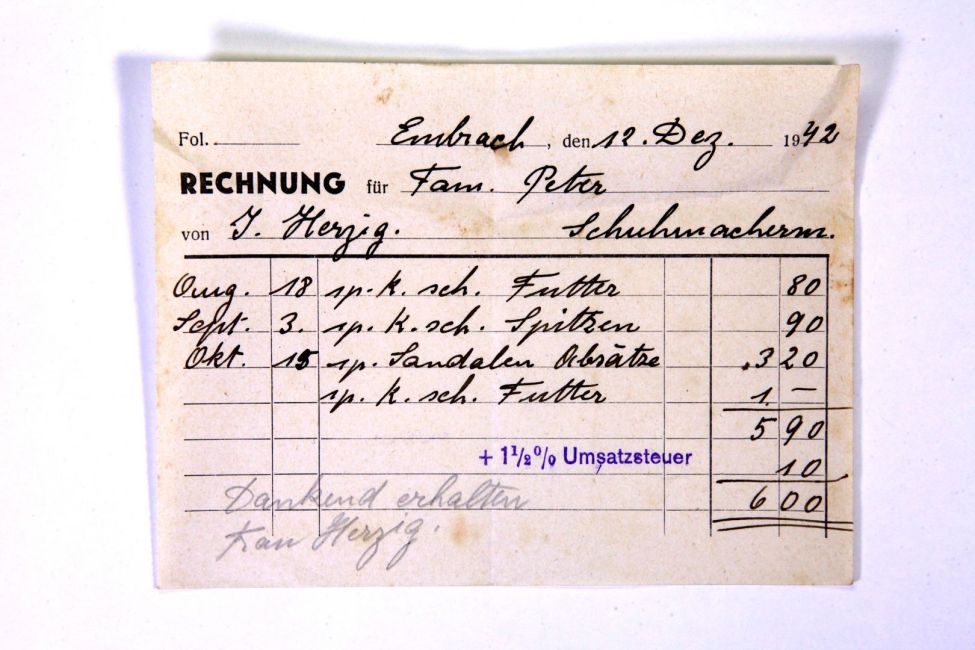 Fol. Embrach, den 12. Dez. 1942
RECHNUNG für Fam. Peter
von J. Herzig. Schuhmacherm.
Aug. 18 sp. K. sch. Futter 80
Sept. 3. sp. K. sch. Spitzen 90
Okt. 15 sp. Sandalen Absätze 3 20
sp. K. sch. Futter 1. –
5 90
+ 1½% Umsatzsteuer 10
6 00
Dankend erhalten
Frau Herzig.